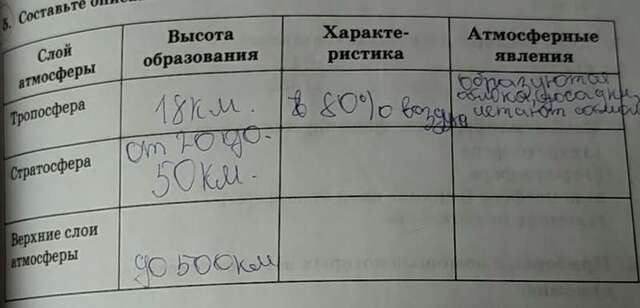 5. Составьте
Слой
атмосферы
Высота
образования
Характе-
ристика
Атмосферные
явления
Тропосфера
18км.
в 80% воздуха
образуются
облака, осадки,
Стратосфера
от 20 до
50 км.
Верхние слои
атмосферы
до 500 км